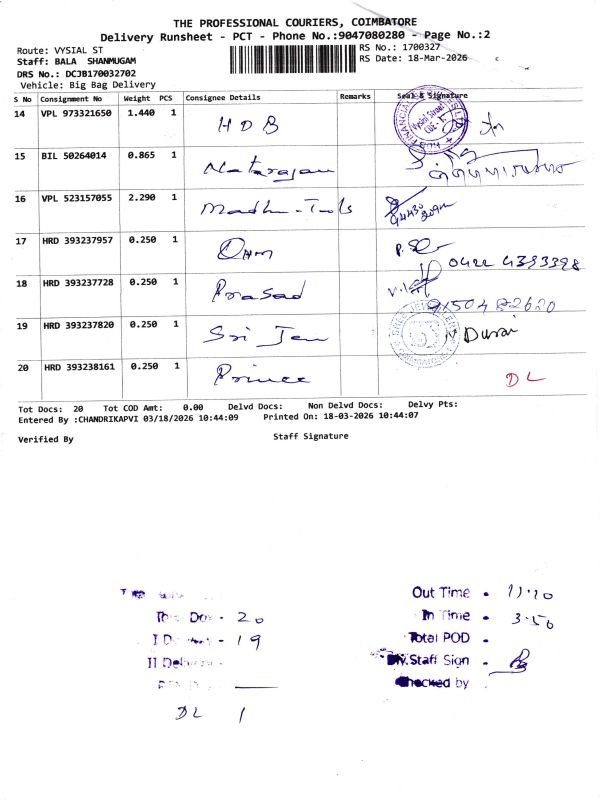 THE PROFESSIONAL COURIERS, COIMBATORE
Delivery Runsheet - PCT - Phone No.:9047080280 - Page No.:2
Route: VYSIAL ST RS No.: 1700327
Staff: BALA SHANMUGAM RS Date: 18-Mar-2026
DRS No.: DCJB170032702
Vehicle: Big Bag Delivery
S No Consignment No Weight PCS Consignee Details Remarks Seal & Signature
14 VPL 973321650 1.440 1 HDB
15 BIL 50264014 0.865 1 Natarajan
16 VPL 523157055 2.290 1 Madhu-Tools
17 HRD 393237957 0.250 1 OHM
0422 4393398
18 HRD 393237728 0.250 1 Prasad
9150482620
19 HRD 393237820 0.250 1 Sri Jan N Durai
20 HRD 393238161 0.250 1 Prince DL
Tot Docs: 20 Tot COD Amt: 0.00 Delvd Docs: Non Delvd Docs: Delvy Pts:
Entered By :CHANDRIKAPVI 03/18/2026 10:44:09 Printed On: 18-03-2026 10:44:07
Verified By Staff Signature
Out Time - 11.10
20 In Time - 3.50
19 Total POD -
Staff Sign -
Checked by
DL 1